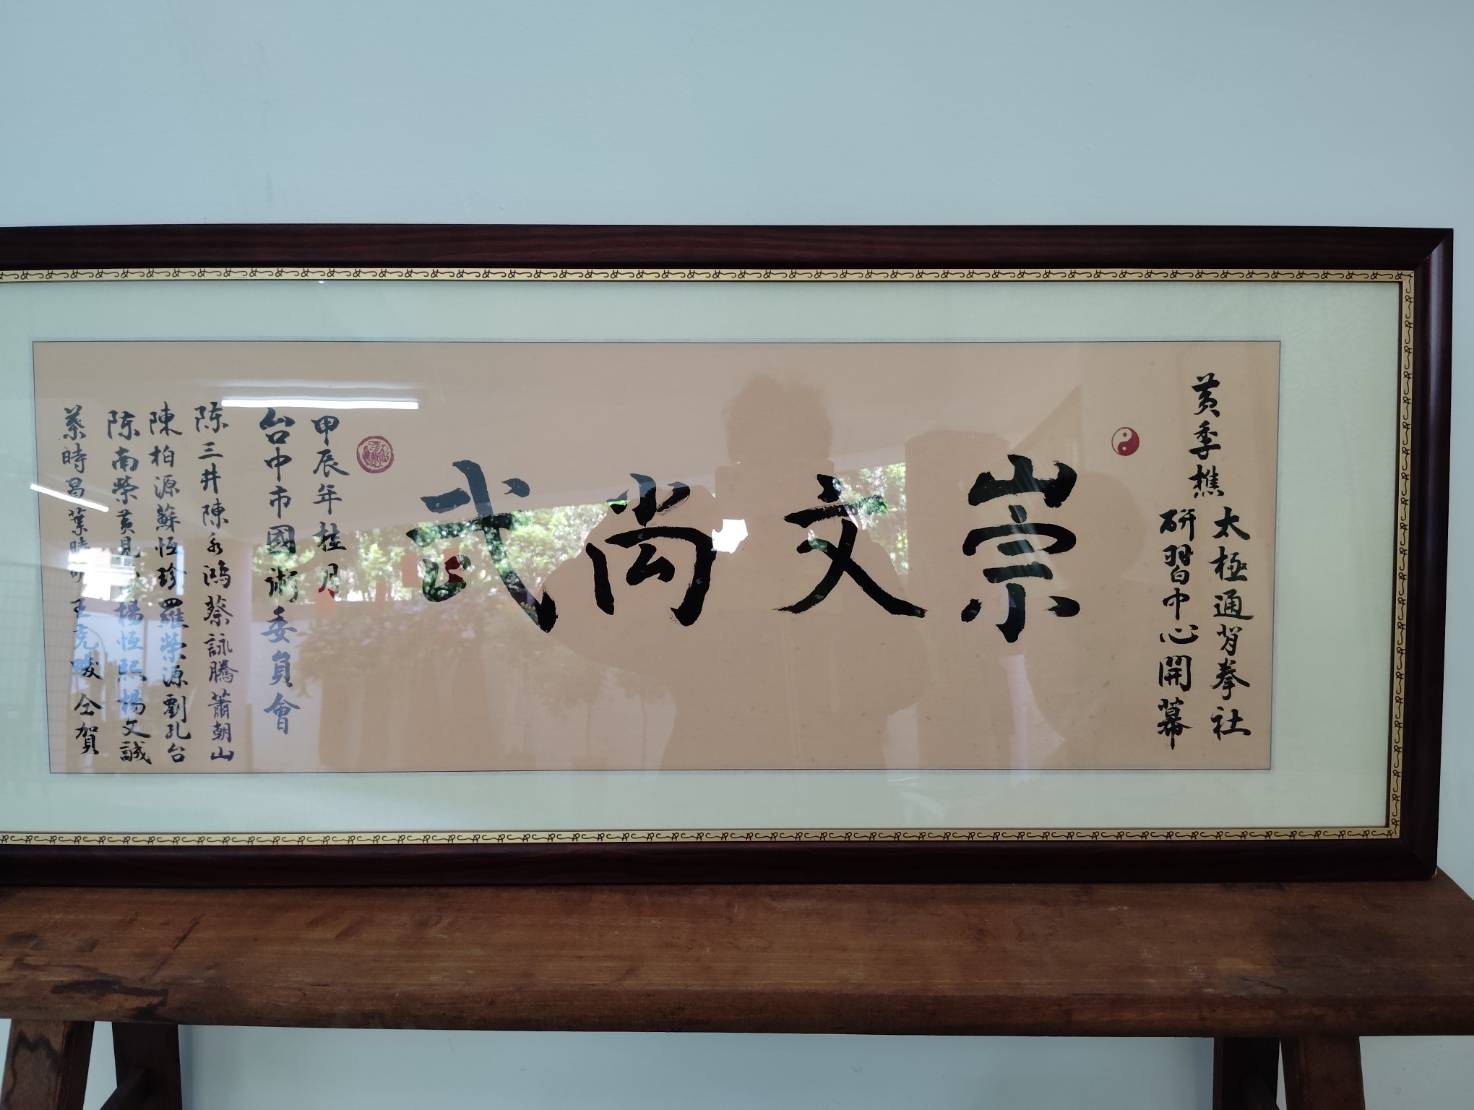 黃季樵
太極通背拳社
研習中心開幕
崇文尚武
甲辰年桂月
台中市國術委員會
陳三井陳永鴻蔡詠騰蕭朝山
陳柏源蘇恒珍羅榮源劉孔台
陳南榮黃見 楊恒熙楊文誠
蔡時昌葉時 王克畯仝賀